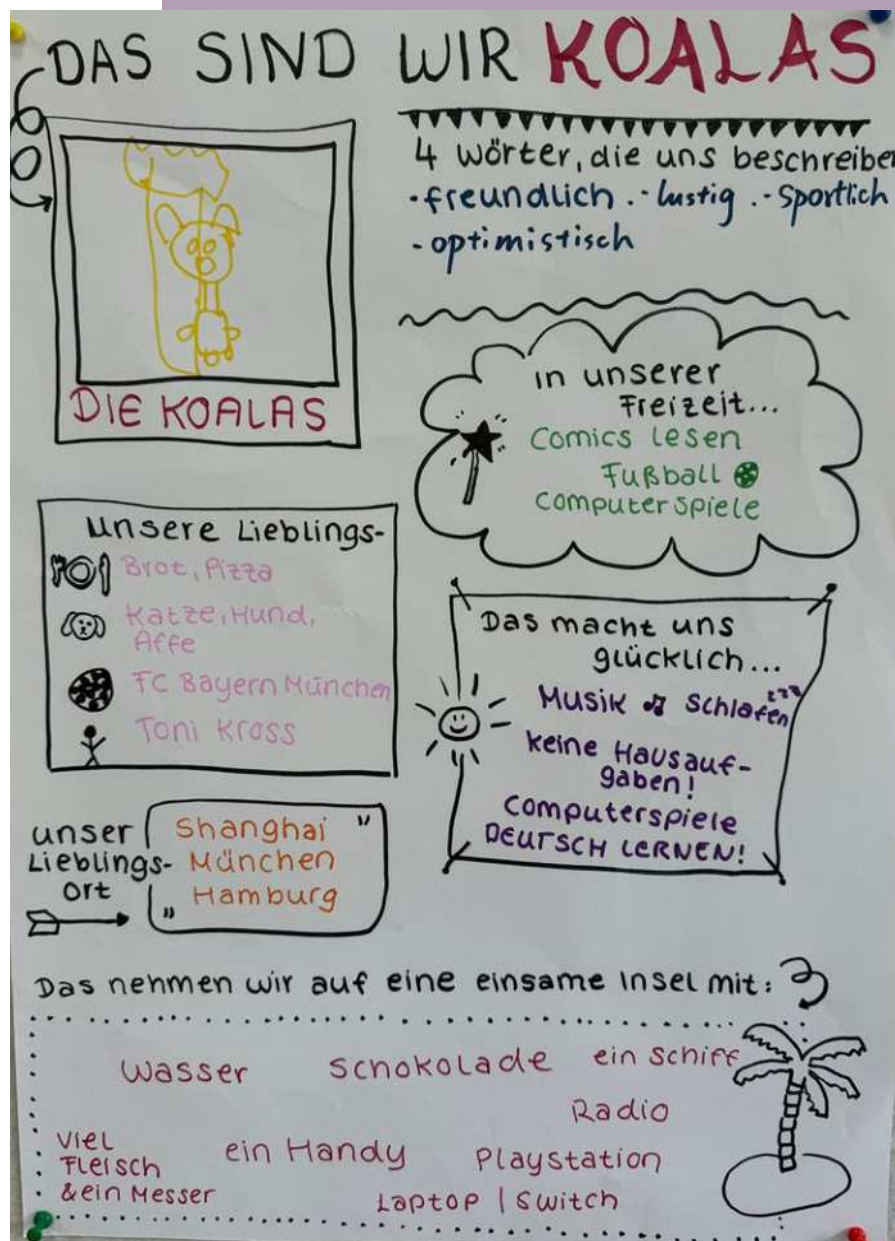 DAS SIND WIR KOALAS
DIE KOALAS
4 wörter, die uns beschreiben
- freundlich . - lustig . - Sportlich
- optimistisch
in unserer
Freizeit...
Comics lesen
Fußball
Computerspiele
unsere Lieblings-
Brot, Pizza
Katze, Hund,
Affe
FC Bayern München
Toni Kross
Das macht uns
glücklich...
Musik Schlafen zzz
keine Hausauf-
gaben!
Computerspiele
DEUTSCH LERNEN!
unser
Lieblings-
ort
Shanghai "
München
„ Hamburg
Das nehmen wir auf eine einsame Insel mit:
Wasser Schokolade ein Schiff
Radio
Viel
Fleisch
& ein Messer
ein Handy Playstation
Laptop | Switch